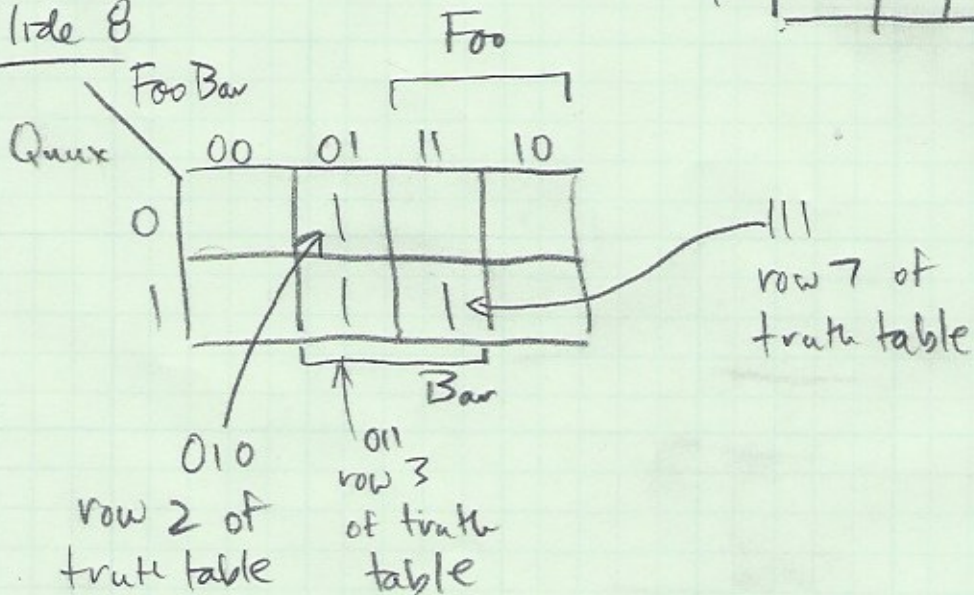 lide 8
Foo
Foo Bar
Quux
00 01 11 10
0 1
1 1 1
Bar
111
row 7 of
truth table
010
row 2 of
trute table
011
row 3
of truth
table